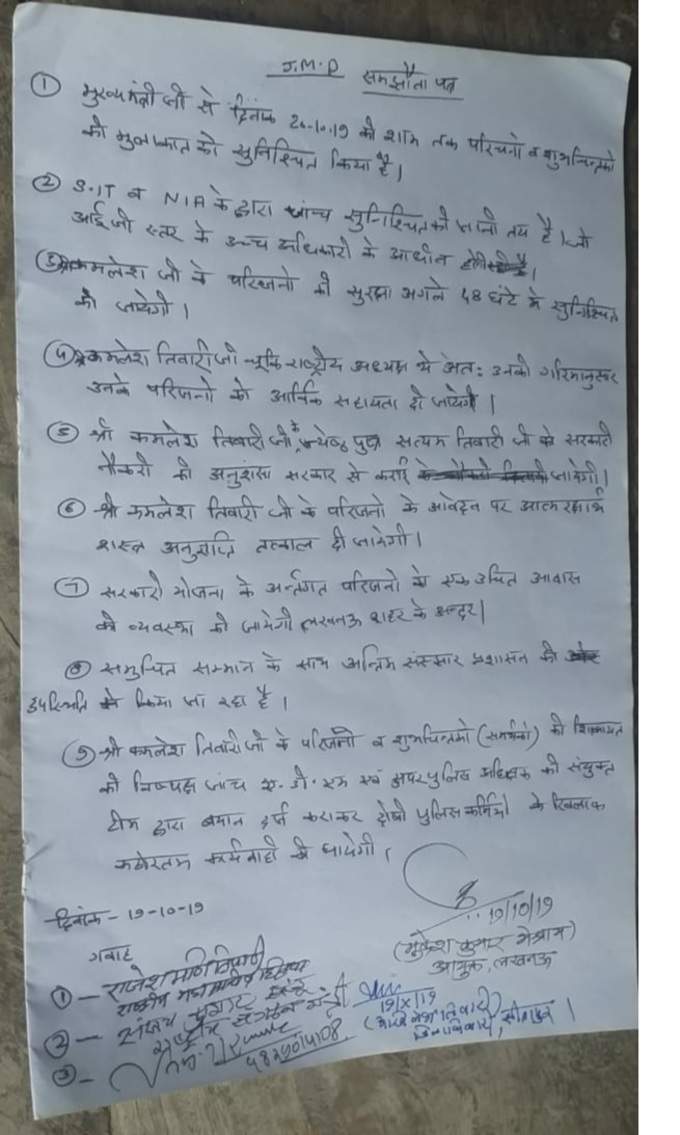 J.M.D समझौता पत्र
① मुख्यमंत्री जी से दिनांक 20-10-19 को शाम तक परिजनों व शुभचिन्तकों
की मुलाकात को सुनिश्चित किया है।
② S.IT व NIA के द्वारा जांच सुनिश्चित की जानी तय है। जो
आई जी स्तर के उच्च अधिकारी के अधीन होगी।
③ श्री कमलेश जी के परिजनों की सुरक्षा अगले 48 घंटे में सुनिश्चित
की जायेगी।
④ श्री कमलेश तिवारी जी चूंकि राष्ट्रीय अध्यक्ष थे अतः उनकी गरिमानुसार
उनके परिजनों को आर्थिक सहायता दी जायेगी।
⑤ श्री कमलेश तिवारी जी के ज्येष्ठ पुत्र सत्यम तिवारी जी को सरकारी
नौकरी की अनुशंसा सरकार से करायी जायेगी।
⑥ श्री कमलेश तिवारी जी के परिजनों के आवेदन पर आत्मरक्षार्थ
शस्त्र अनुज्ञप्ति तत्काल दी जायेगी।
⑦ सरकारी योजना के अर्न्तगत परिजनों को एक उचित आवास
की व्यवस्था की जायेगी लखनऊ शहर के अन्दर।
⑧ समुचित सम्मान के साथ अन्तिम संस्कार प्रशासन की
उपस्थिति में किया जा रहा है।
⑨ श्री कमलेश तिवारी जी के परिजनों व शुभचिन्तकों (समर्थकों) की शिकायत
की निष्पक्ष जांच ए.डी.एम एवं अपर पुलिस अधिक्षक की संयुक्त
टीम द्वारा बयान दर्ज कराकर दोषी पुलिस कर्मियों के खिलाफ
कठोरतम कार्यवाही की जायेगी।
दिनांक - 19-10-19
19/10/19
(मुकेश कुमार मेश्राम)
आयुक्त, लखनऊ
गवाह
① - राजेश मणि त्रिपाठी
राष्ट्रीय
② -
③ -
19/X/19
तिवारी)
जिलाधिकारी, सीतापुर।